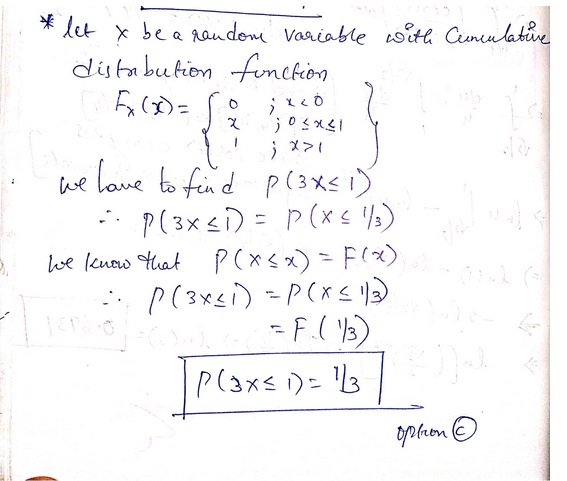 * let x be a random variable with Cumulative
distribution function
Fx(x) = { 0 ; x<0
x ; 0≤x≤1
1 ; x>1 }
we have to find P(3x≤1)
∴ P(3x≤1) = P(x≤1/3)
we know that P(x≤x) = F(x)
∴ P(3x≤1) = P(x≤1/3)
= F.(1/3)
P(3x≤1) = 1/3
option ⓒ